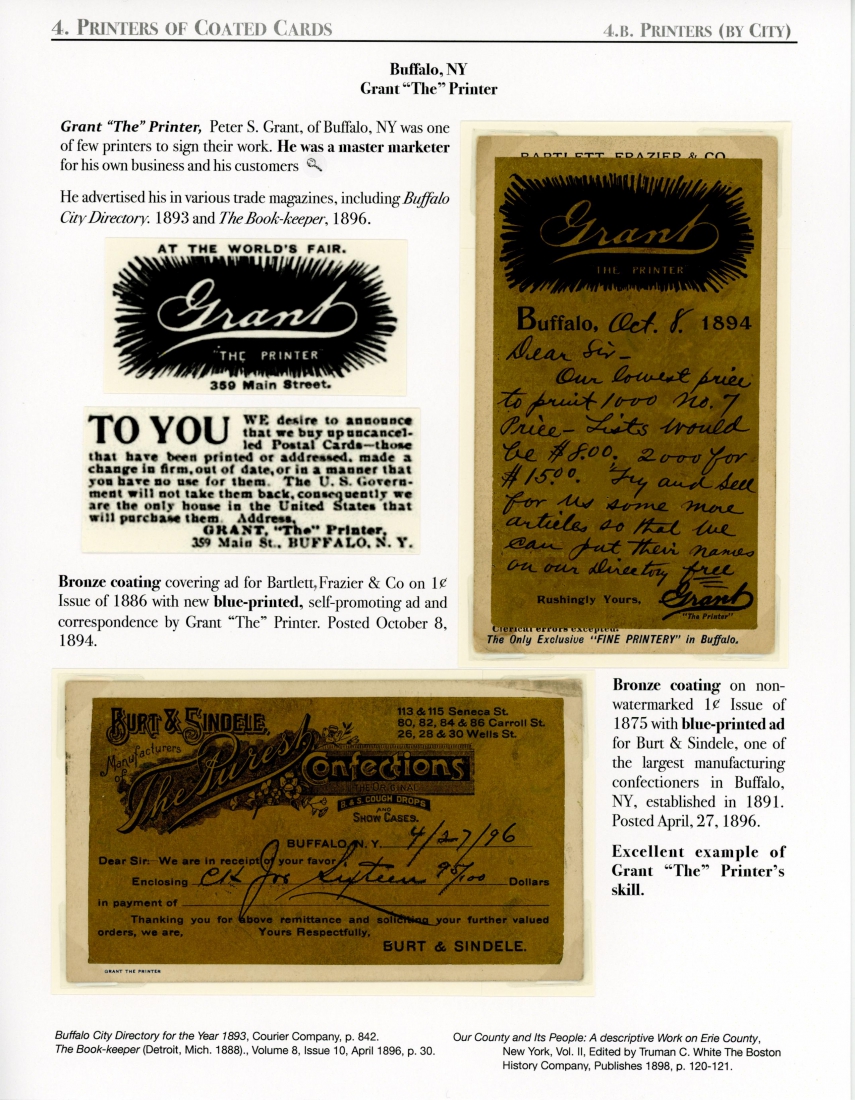 4. PRINTERS OF COATED CARDS
4.B. PRINTERS (BY CITY)
Buffalo, NY
Grant “The” Printer
Grant “The” Printer, Peter S. Grant, of Buffalo, NY was one
of few printers to sign their work. He was a master marketer
for his own business and his customers
He advertised his in various trade magazines, including Buffalo
City Directory. 1893 and The Book-keeper, 1896.
AT THE WORLD'S FAIR.
Grant
"THE PRINTER
359 Main Street.
TO YOU WE desire to announce
that we buy up uncancel-
led Postal Cards—those
that have been printed or addressed, made a
change in firm, out of date, or in a manner that
you have no use for them. The U. S. Govern-
ment will not take them back, consequently we
are the only house in the United States that
will purchase them. Address,
GRANT, "The" Printer,
359 Main St., BUFFALO, N. Y.
Bronze coating covering ad for Bartlett, Frazier & Co on 1¢
Issue of 1886 with new blue-printed, self-promoting ad and
correspondence by Grant “The” Printer. Posted October 8,
1894.
BARTLETT, FRAZIER & CO
Grant
THE PRINTER
Buffalo, Oct. 8. 1894
Dear Sir-
Our lowest price
to print 1000 No. 7
Price-Lists would
be $8.00. 2000 for
$15.00. Try and sell
for us some more
articles so that we
can put their names
on our Directory free
Rushingly Yours, Grant
"The Printer"
Clerical errors excepted.
The Only Exclusive "FINE PRINTERY" in Buffalo.
BURT & SINDELE,
113 & 115 Seneca St.
80, 82, 84 & 86 Carroll St.
26, 28 & 30 Wells St.
Manufacturers
of
The Purest
Confections
THE ORIGINAL
B. & S. COUGH DROPS
AND
SHOW CASES.
BUFFALO, N. Y. 4/27/96
Dear Sir: We are in receipt of your favor
Enclosing Ck for Sixteen 95/100 Dollars
in payment of
Thanking you for above remittance and soliciting your further valued
orders, we are, Yours Respectfully,
BURT & SINDELE.
GRANT THE PRINTER
Bronze coating on non-
watermarked 1¢ Issue of
1875 with blue-printed ad
for Burt & Sindele, one of
the largest manufacturing
confectioners in Buffalo,
NY, established in 1891.
Posted April, 27, 1896.
Excellent example of
Grant “The” Printer’s
skill.
Buffalo City Directory for the Year 1893, Courier Company, p. 842.
The Book-keeper (Detroit, Mich. 1888)., Volume 8, Issue 10, April 1896, p. 30.
Our County and Its People: A descriptive Work on Erie County,
New York, Vol. II, Edited by Truman C. White The Boston
History Company, Publishes 1898, p. 120-121.